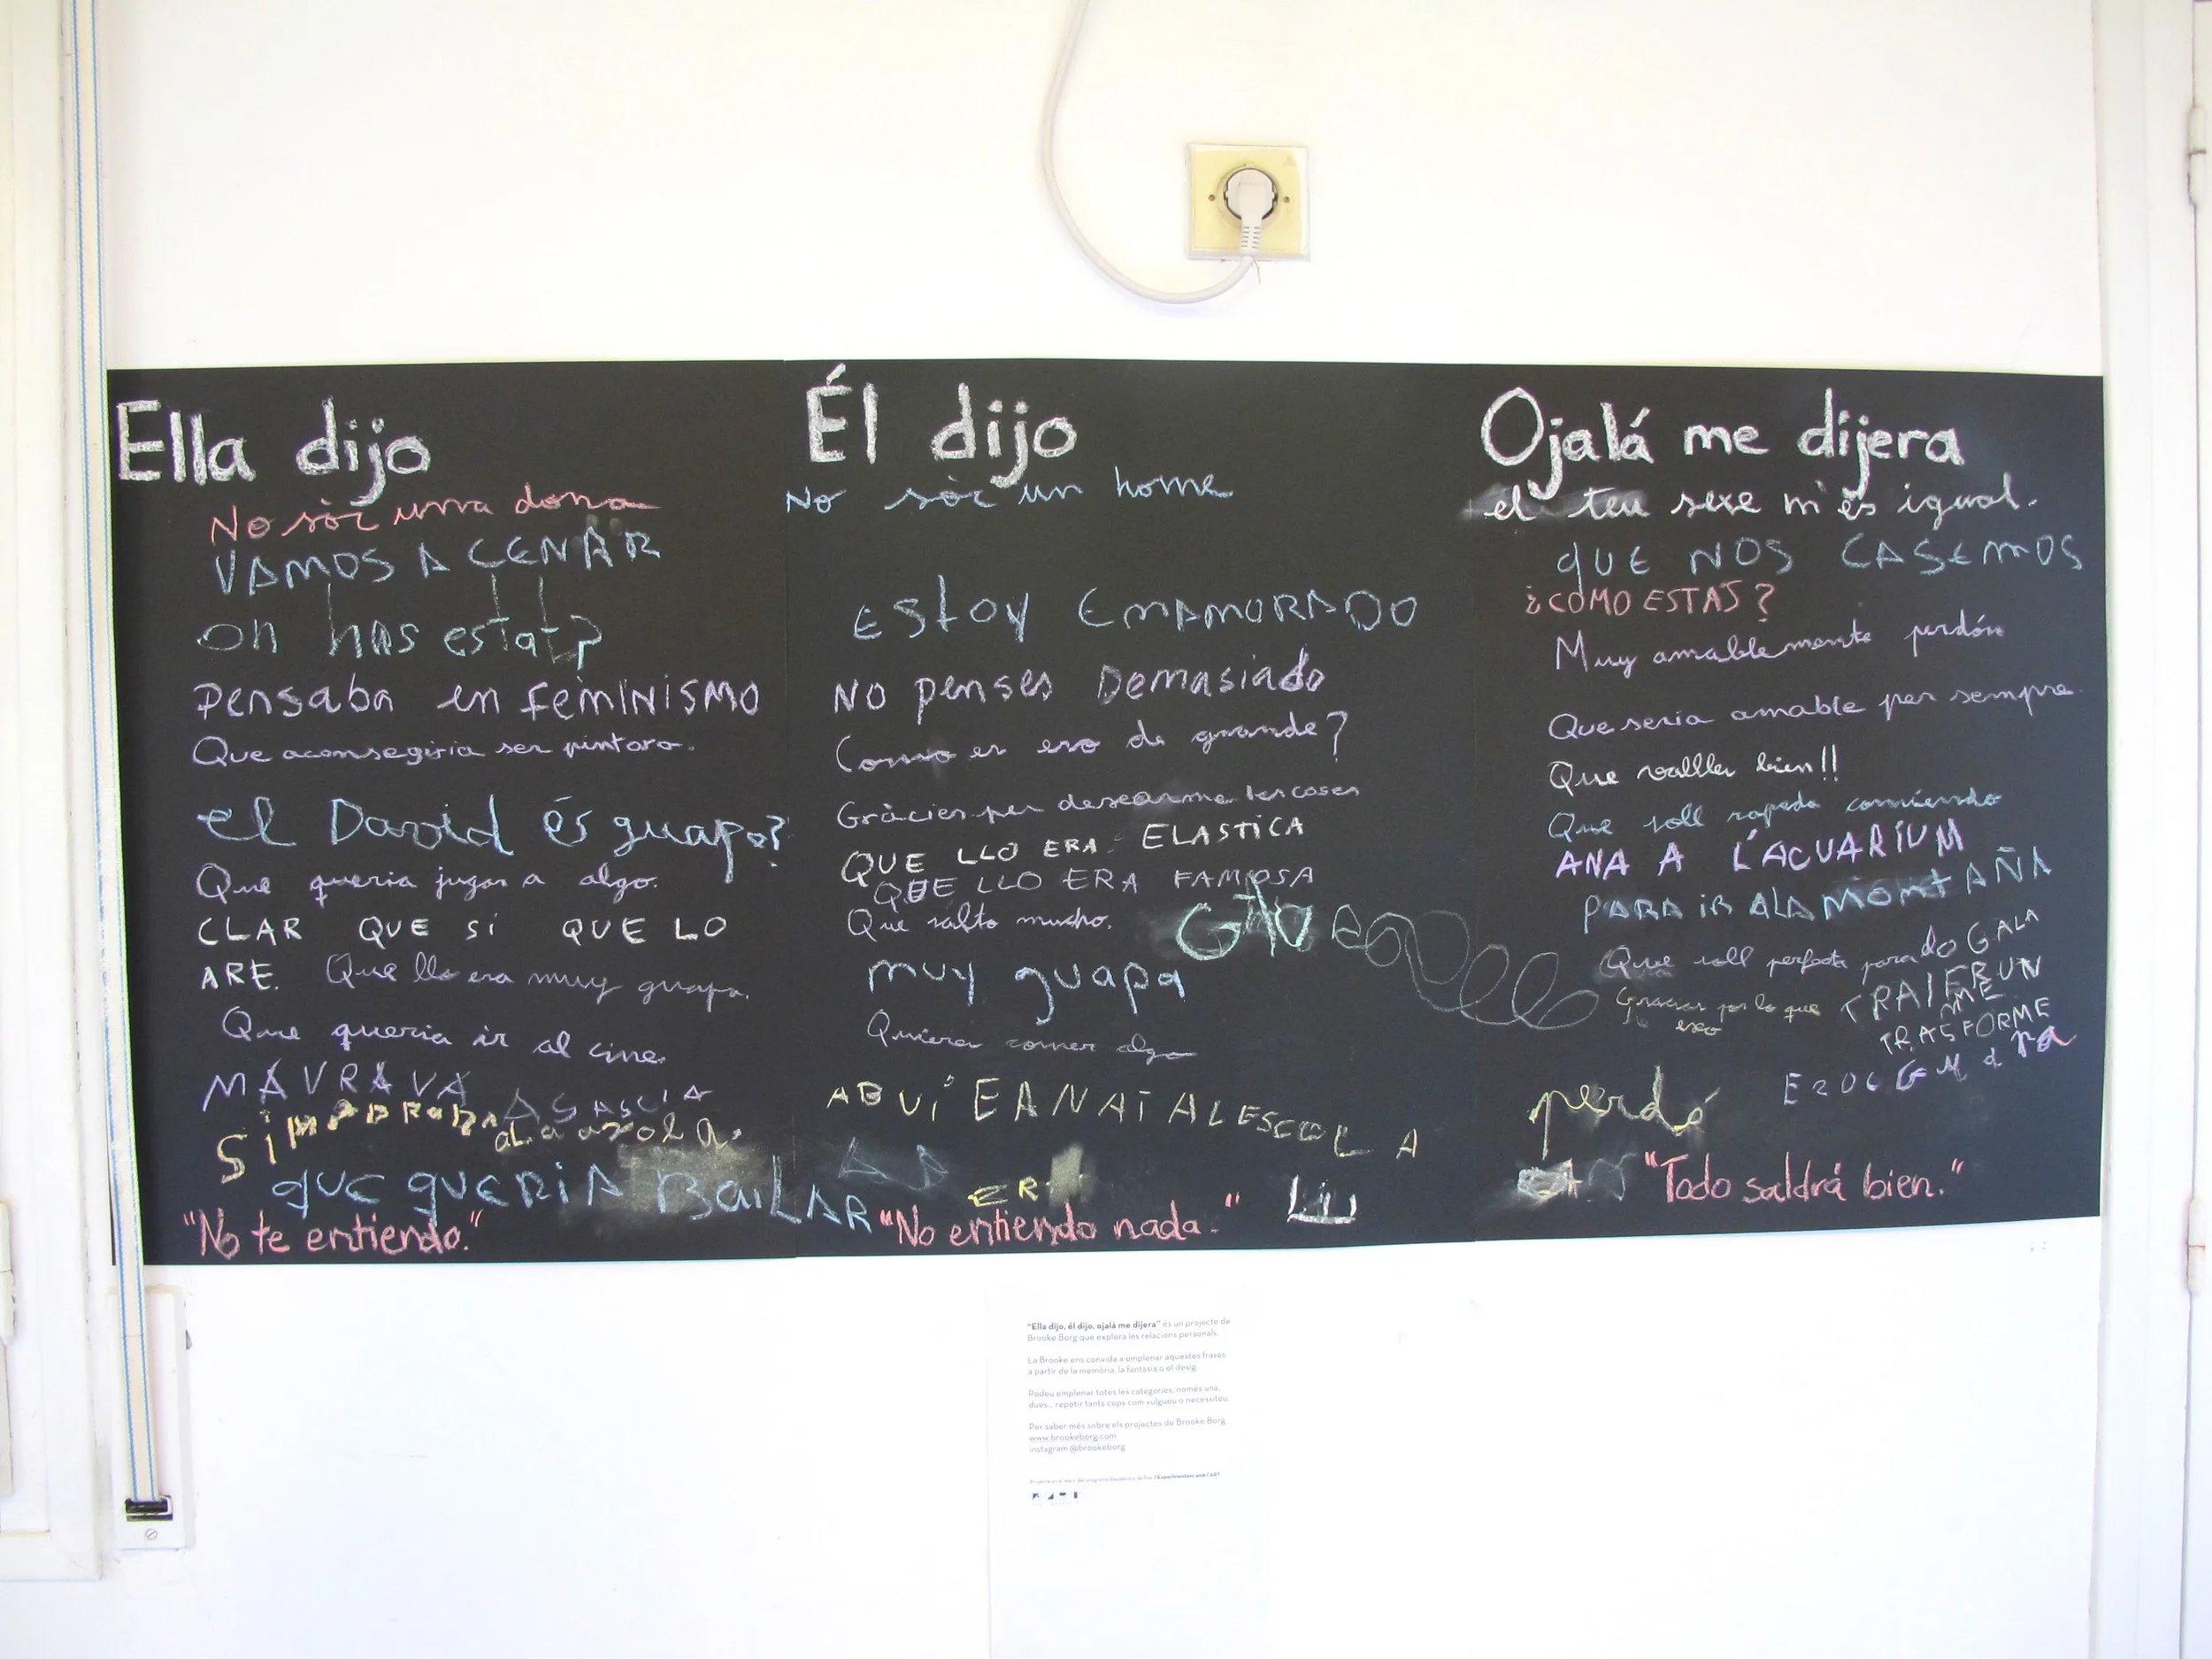 Ella dijo
No sóc una dona
VAMOS A CENAR
On has estat?
Pensaba en feminismo
Que aconsegiria ser pintora.
el David és guapo?
Que queria jugar a algo.
CLAR QUE SÍ QUE LO
ARE. Que llo era muy guapa.
Que queria ir al cine.
MÁVRAVA
SI
a la
que queria BaiLAR
"No te entiendo."
Él dijo
No sóc un home
Estoy Enamorado
NO penses Demasiado
Como es eso de grande?
Gràcies per desearme les coses
QUE LLO ERA ELASTICA
QUE LLO ERA FAMOSA
Que salto mucho.
muy guapa
Quieres comer algo
ESCOLA
"No entiendo nada."
Ojalá me dijera
el teu sexe m'és igual.
que NOS CASEMOS
¿COMO ESTAS?
Muy amablemente perdón
Que seria amable per sempre.
Que vallla bien!!
Que soll rapida comiendo
ANA A L'ACUARIUM
PARA IR A LA MONTAÑA
Que soll perfecta para do GALA
Gracias por lo que TRAIERUN
eso ME
TRASFORME
perdó
"Todo saldrá bien."
"Ella dijo, él dijo, ojalá me dijera" és un projecte de
Brooke Borg que explora les relacions personals.
La Brooke ens convida a emplenar aquestes frases
a partir de la memòria, la fantasia o el desig.
Podeu emplenar totes les categories, només una,
dues... repetir tants cops com vulgueu o necessiteu.
Per saber més sobre els projectes de Brooke Borg
www.brookeborg.com
instagram @brookeborg